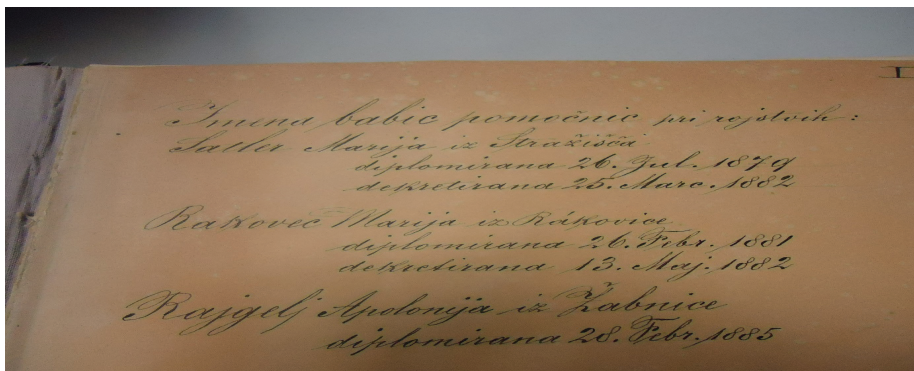 Imena babic pomočnic pri rojstvih:
Satler Marija iz Stražišča
diplomirana 26. Jul. 1879
dekretirana 25. Marc. 1882
Rakoveč Marija iz Rákovice
diplomirana 26. Febr. 1881
dekretirana 13. Maj. 1882
Rajgelj Apolonija iz Žabnice
diplomirana 28. Febr. 1885